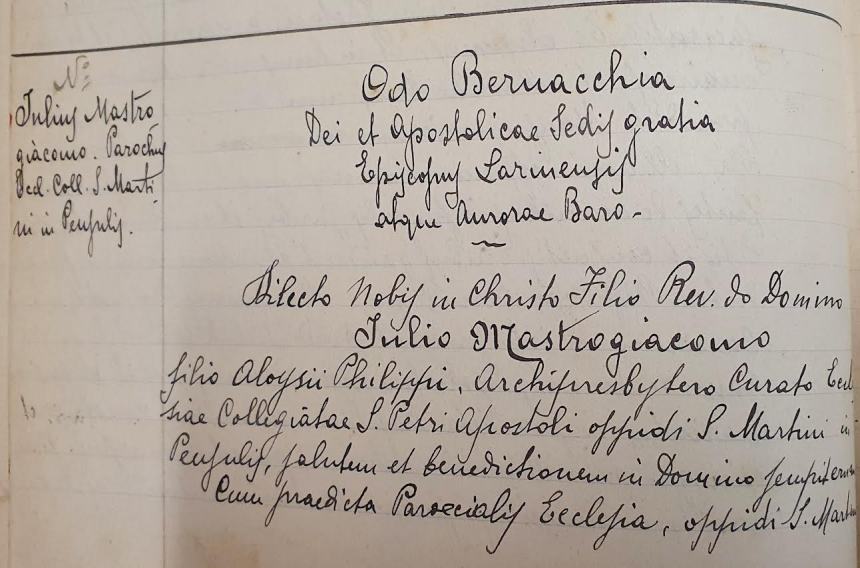 N.º
Julius Mastro
giacomo. Parochus
Eccl. Coll. S. Marti-
ni in Pensulis.
Odo Bernacchia
Dei et Apostolicae Sedis gratia
Episcopus Larinensis
atque Aurorae Baro-
Dilecto Nobis in Christo Filio Rev. do Domino
Julio Mastrogiacomo
filio Aloysii Philippi, Archipresbytero Curato Eccle
siae Collegiatae S. Petri Apostoli oppidi S. Martini in
Pensulis, salutem et benedictionem in Domino sempitern
Cum praedicta Paroecialis Ecclesia, oppidi S. Mart